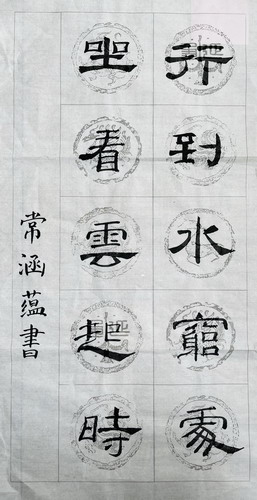 行到水窮處
坐看雲起時
常涵蘊書